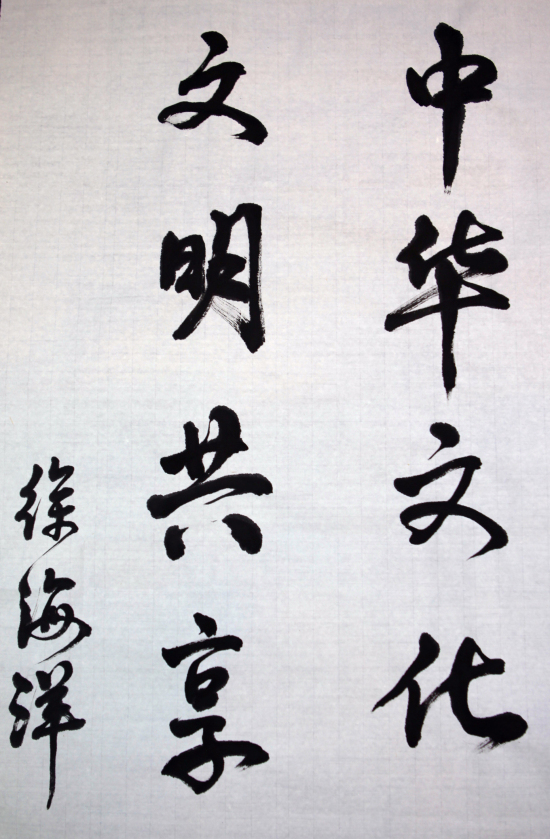 中华文化
文明共享
徐海洋